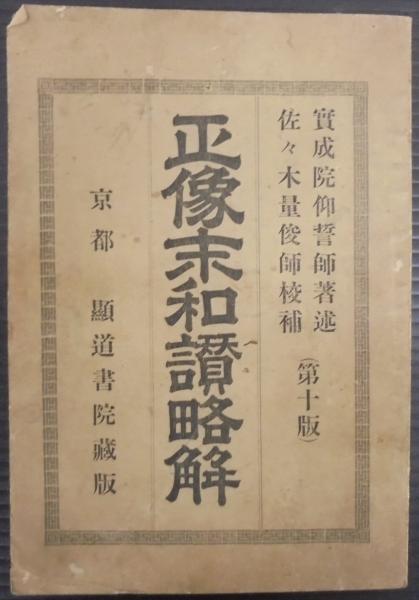 實成院仰誓師著述
佐々木量俊師校補
(第十版)
正像末和讃略解
京都 顯道書院藏版